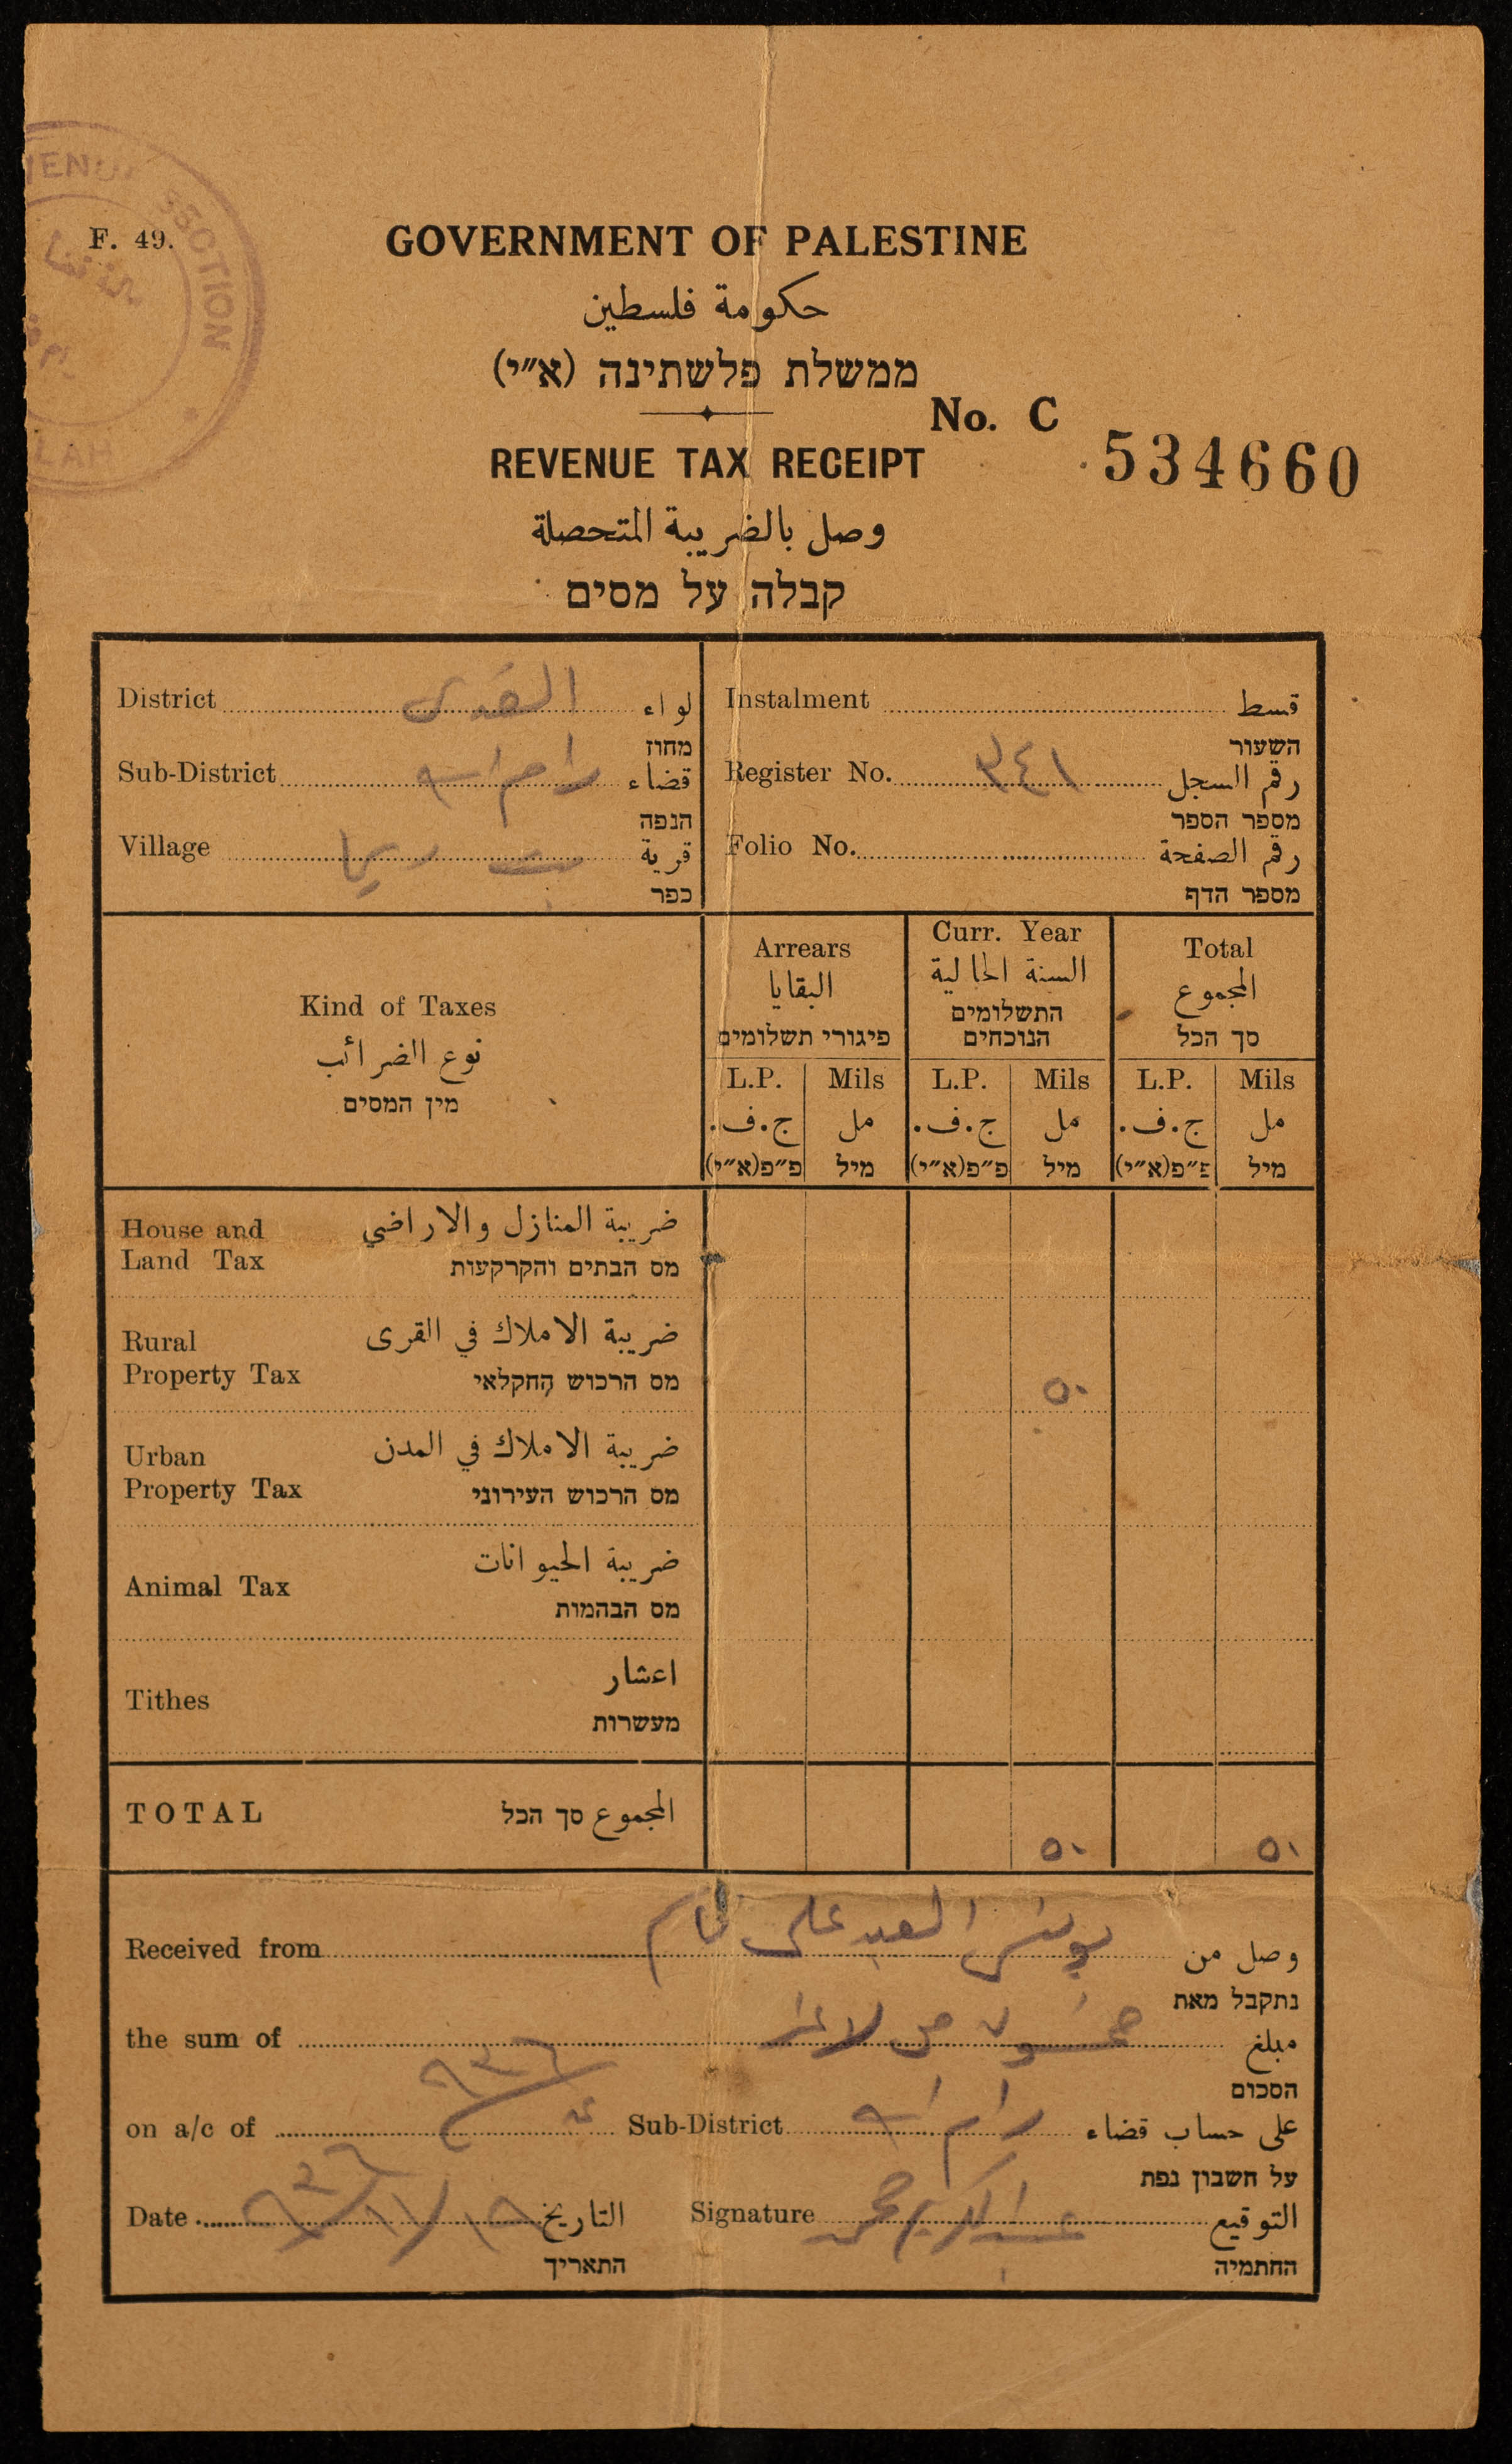 F. 49.
GOVERNMENT OF PALESTINE
حكومة فلسطين
ממשלת פלשתינה (א״י)
No. C 534660
REVENUE TAX RECEIPT
وصل بالضريبة المتحصلة
קבלה על מסים
District القدس لواء
מחוז
Sub-District رام الله قضاء
הנפה
Village بيت ريما قرية
כפר
Instalment قسط
השעור
Register No. ٣٤١ رقم السجل
מספר הספר
Folio No. رقم الصفحة
מספר הדף
Kind of Taxes
نوع الضرائب
מין המסים
Arrears
البقايا
פיגורי תשלומים
Curr. Year
السنة الحالية
התשלומים
הנוכחים
Total
المجموع
סך הכל
L.P. Mils L.P. Mils L.P. Mils
ج.ف. مل ج.ف. مل ج.ف. مل
פ״פ(א״י) מיל פ״פ(א״י) מיל פ״פ(א״י) מיל
House and
Land Tax
ضريبة المنازل والاراضي
מס הבתים והקרקעות
Rural
Property Tax
ضريبة الاملاك في القرى
מס הרכוש החקלאי
٥٠
Urban
Property Tax
ضريبة الاملاك في المدن
מס הרכוש העירוני
Animal Tax
ضريبة الحيوانات
מס הבהמות
Tithes
اعشار
מעשרות
TOTAL المجموع סך הכל ٥٠ ٥٠
Received from العبد علي وصل من
נתקבל מאת
the sum of خمسون مل لا غير مبلغ
הסכום
on a/c of Sub-District رام الله على حساب قضاء
על חשבון נפת
Date التاريخ
התאריך
Signature عبد الكريم التوقيع
החתמיה